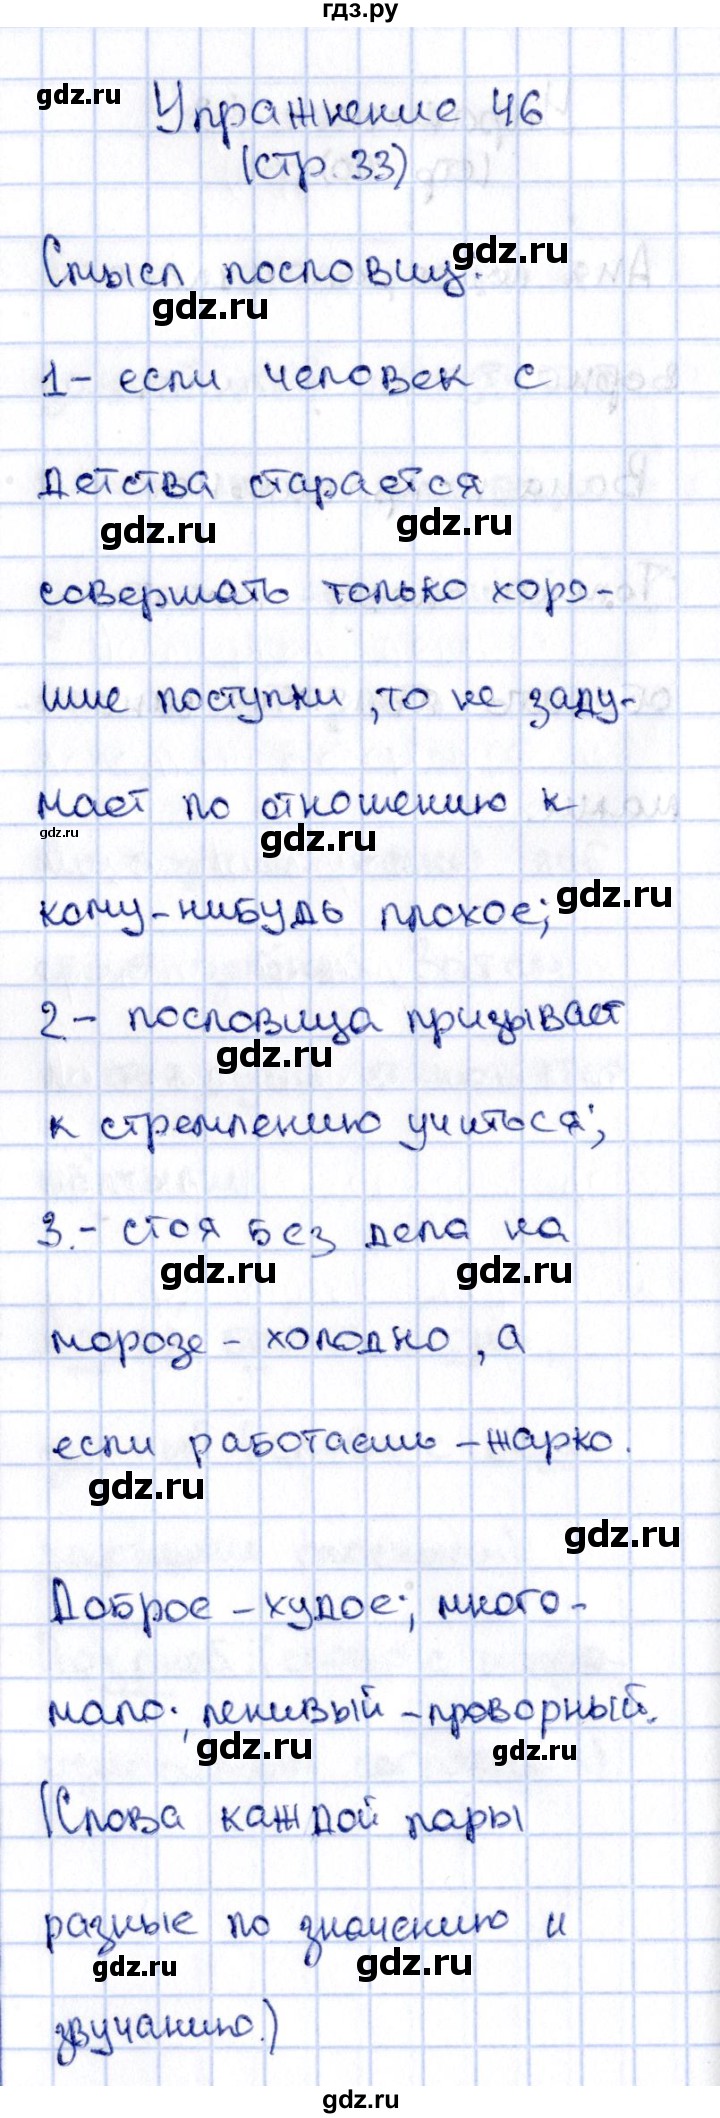 гдз.ру
gdz.ru
Упражнение 46
(стр 33)
gdz.ru
Смысл пословиц:
gdz.ru
1- если человек с
детства старается
gdz.ru gdz.ru
совершать только хоро-
шие поступки, то не заду-
мает по отношению к
gdz.ru gdz.ru
кому-нибудь плохое;
gdz.ru
2.- пословица призывает
gdz.ru
к стремлению учиться;
3.- стоя без дела на
gdz.ru gdz.ru
морозе - холодно, а
если работаешь - жарко.
gdz.ru
gdz.ru
Доброе - худое; много-
мало; ленивый - проворный.
gdz.ru gdz.ru
(Слова каждой пары
разные по значению и
gdz.ru gdz.ru
звучанию.)
gdz.ru